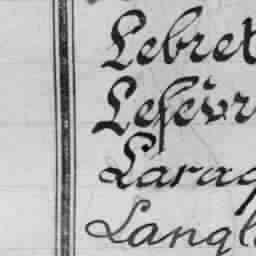 Lebret
Lefèvr
Larag
Langl